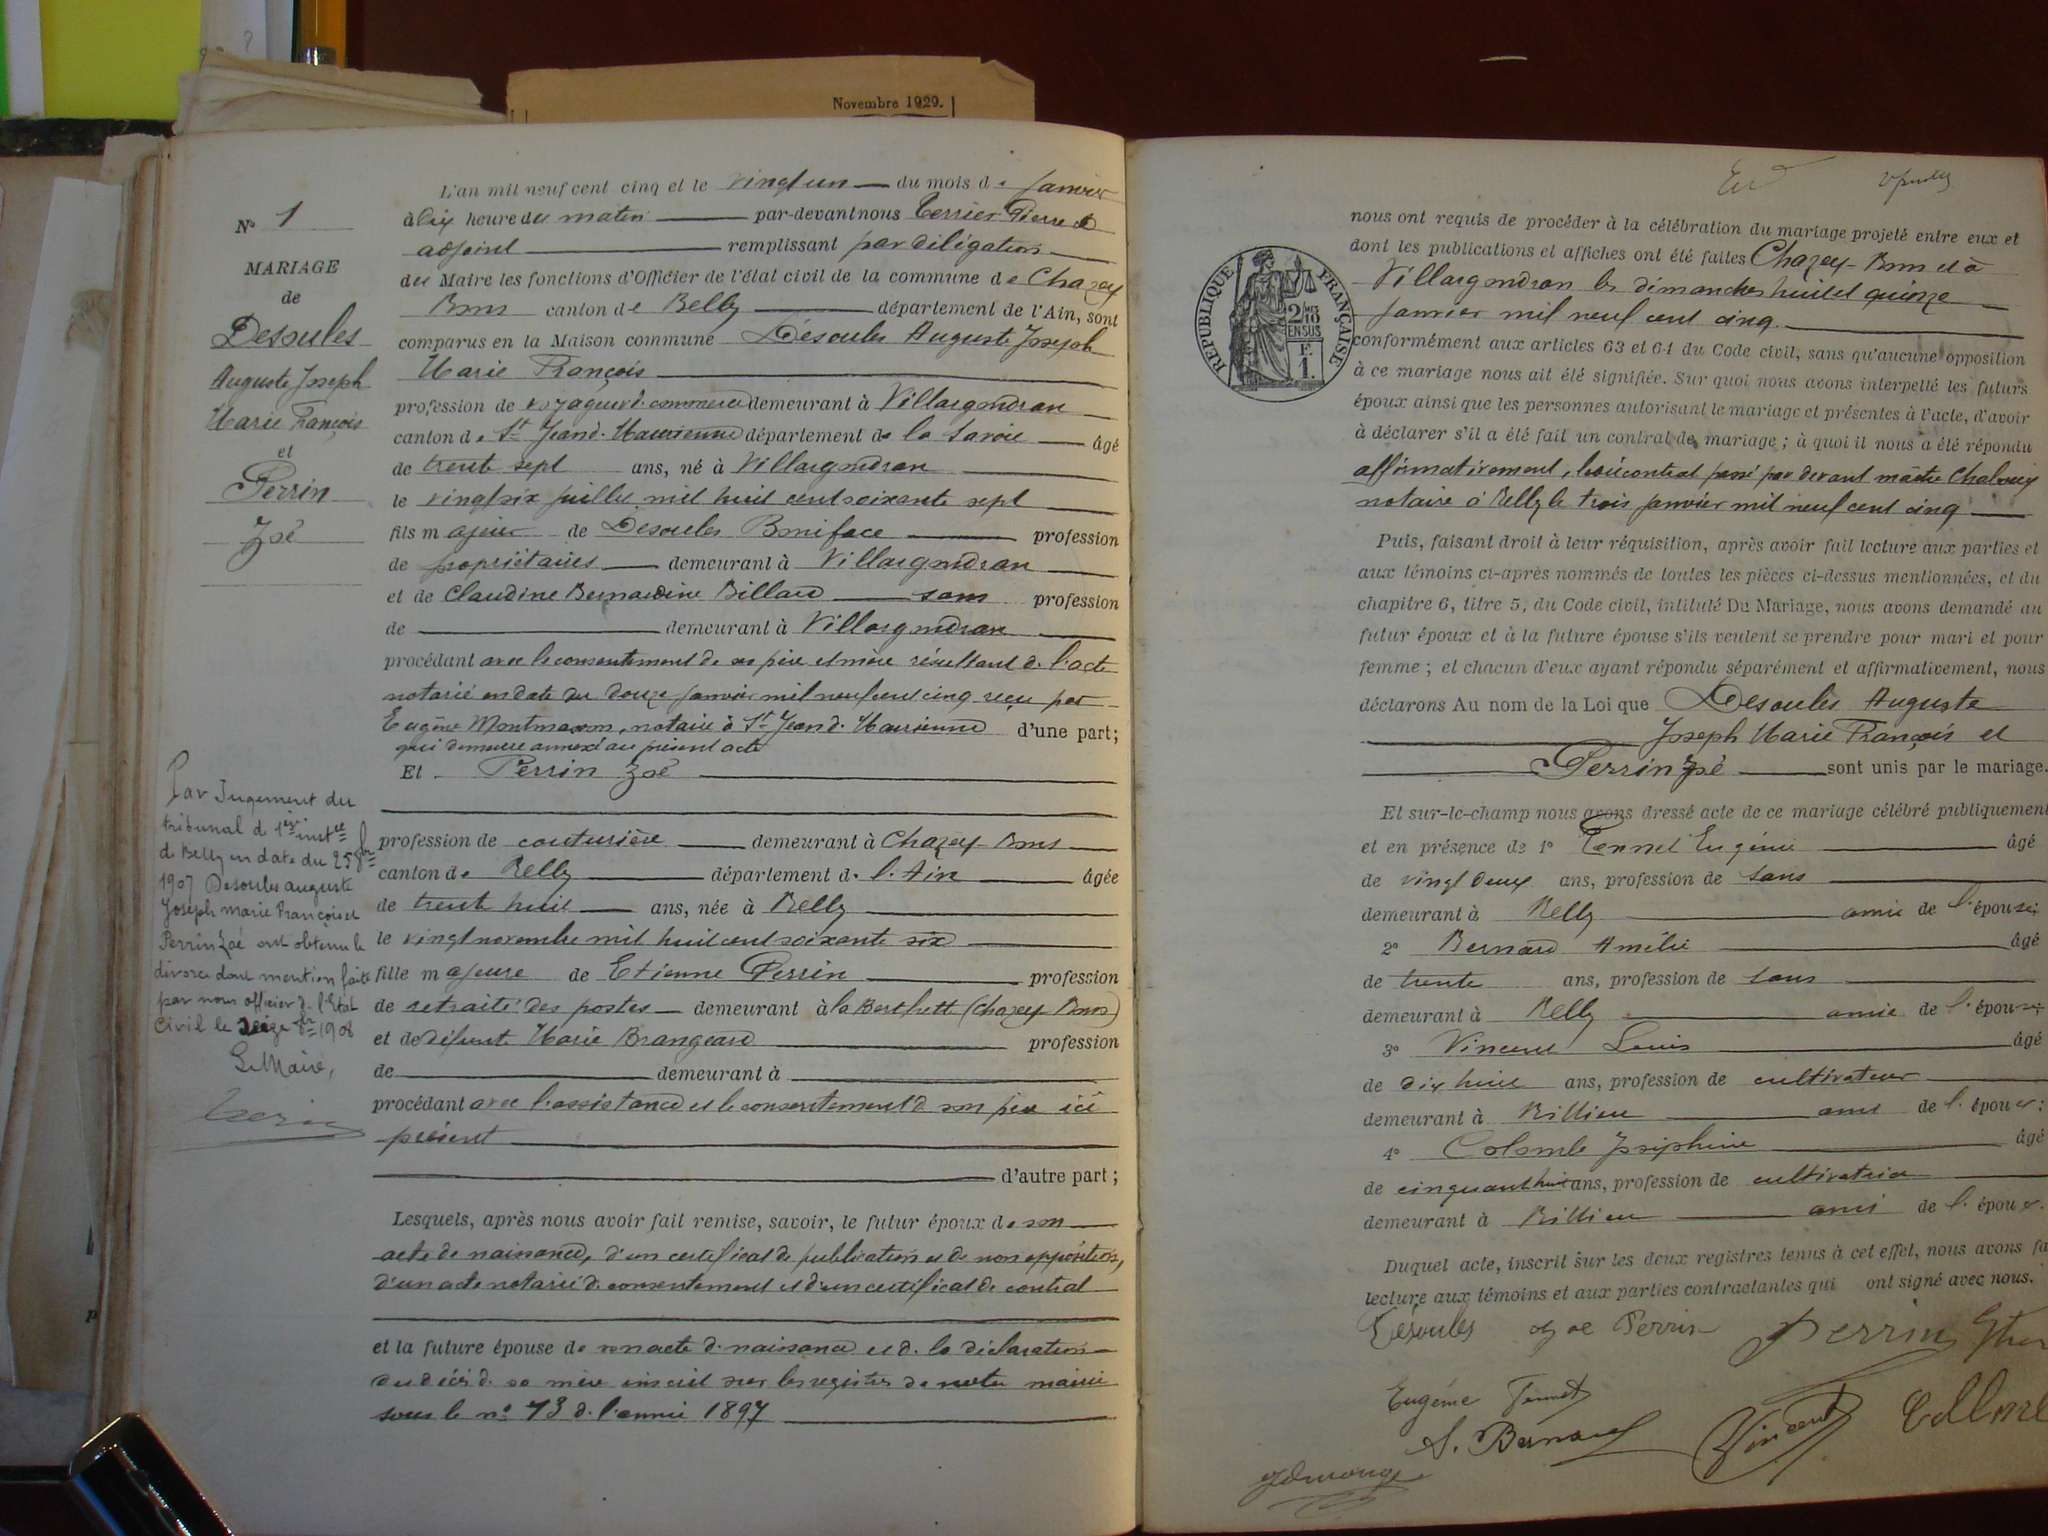 Novembre 1929.
N° 1
MARIAGE
de
Desoules
Auguste Joseph
Marie François
et
Perrin
Zoé
Par Jugement du
tribunal de 1ère instce
de Belley en date du 25
1907 Desoules auguste
Joseph marie François et
Perrin Zoé ont obtenu le
divorce dont mention faite
par nous officier de l'Etat
Civil le 1908
Le Maire,
L'an mil neuf cent cinq et le vingt un du mois de Janvier
à dix heure du matin par-devant nous Terrier Pierre
adjoint remplissant par délégation
du Maire les fonctions d'Officier de l'état civil de la commune de Chazey
Bons canton de Belley département de l'Ain, sont
comparus en la Maison commune Désoules Auguste Joseph
Marie François
profession de voyageur de commerce demeurant à Villargondran
canton de St Jean de Maurienne département de la Savoie âgé
de trente sept ans, né à Villargondran
le vingt six juillet mil huit cent soixante sept
fils majeur de Désoules Boniface profession
de propriétaires demeurant à Villargondran
et de Claudine Bernardine Billard sans profession
de demeurant à Villargondran
procédant avec le consentement de ses père et mère résultant de l'acte
notarié en date du douze janvier mil neuf cent cinq reçu par
Eugène Montmasson, notaire à St Jean de Maurienne d'une part;
qui demeure annexé au présent acte
Et Perrin Zoé
profession de couturière demeurant à Chazey-Bons
canton de Belley département de l'Ain âgée
de trente huit ans, née à Belley
le vingt novembre mil huit cent soixante six
fille majeure de Etienne Perrin profession
de retraité des postes demeurant à la Berthett (Chazey Bons)
et de défunte Marie Brangeard profession
de demeurant à
procédant avec l'assistance et le consentement de son père ici
présent
d'autre part;
Lesquels, après nous avoir fait remise, savoir, le futur époux de son
acte de naissance, d'un certificat de publication et de non opposition,
d'un acte notarié de consentement et d'un certificat de contrat
et la future épouse de son acte de naissance et de la déclaration
du décès de sa mère inscrit sur les registres de notre mairie
sous le n° 13 de l'année 1897
nous ont requis de procéder à la célébration du mariage projeté entre eux et
dont les publications et affiches ont été faites Chazey-Bons et à
Villargondran les dimanches huit et quinze
Janvier mil neuf cent cinq
RÉPUBLIQUE FRANÇAISE
2/10 EN SUS
F.
1.
conformément aux articles 63 et 64 du Code civil, sans qu'aucune opposition
à ce mariage nous ait été signifiée. Sur quoi nous avons interpellé les futurs
époux ainsi que les personnes autorisant le mariage et présentes à l'acte, d'avoir
à déclarer s'il a été fait un contrat de mariage; à quoi il nous a été répondu
affirmativement, ledit contrat passé par devant maître
notaire à Belley le trois janvier mil neuf cent cinq
Puis, faisant droit à leur réquisition, après avoir fait lecture aux parties et
aux témoins ci-après nommés de toutes les pièces ci-dessus mentionnées, et du
chapitre 6, titre 5, du Code civil, intitulé Du Mariage, nous avons demandé au
futur époux et à la future épouse s'ils veulent se prendre pour mari et pour
femme; et chacun d'eux ayant répondu séparément et affirmativement, nous
déclarons Au nom de la Loi que Desoules Auguste
Joseph Marie François et
Perrin Zoé sont unis par le mariage.
Et sur-le-champ nous avons dressé acte de ce mariage célébré publiquement
et en présence de 1° Eugénie âgé
de vingt deux ans, profession de sans
demeurant à Belley amie de l'épouse;
2° Bernard Amélie âgé
de trente ans, profession de sans
demeurant à Belley amie de l'épouse;
3° Vincent Louis âgé
de dix huit ans, profession de cultivateur
demeurant à Billieu ami de l'épou ;
4° Colomb Joséphine âgé
de cinquante huit ans, profession de cultivatrice
demeurant à Billieu ami de l'épou
Duquel acte, inscrit sur les deux registres tenus à cet effet, nous avons fa
lecture aux témoins et aux parties contractantes qui ont signé avec nous.
Désoules Zoé Perrin Perrin
Eugénie
A. Bernard Vincent